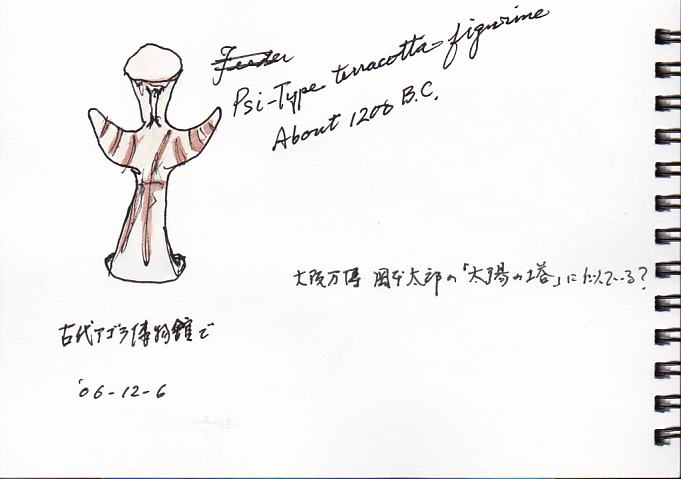 Psi-Type terracotta figurine
About 1200 B.C.
大阪万博 岡本太郎の「太陽の塔」に似ている?
古代アゴラ博物館で
'06-12-6